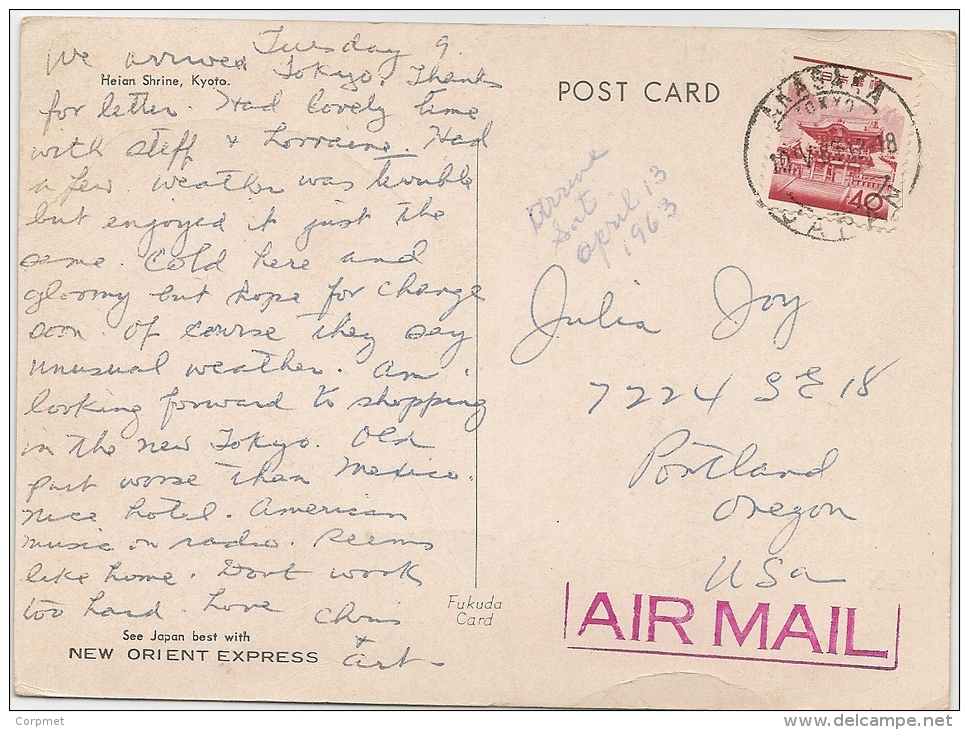 Tuesday 9.
We arrived Tokyo. Thanks
Heian Shrine, Kyoto.
for letter. Had lovely time
with Steff + Lorraine. Had
a few weather was terrible
but enjoyed it just the
same. Cold here and
gloomy but hope for change
soon. Of course they say
unusual weather. Am
looking forward to shopping
in the new Tokyo. Old
part worse than Mexico.
Nice hotel. American
music on radio. Seems
like home. Dont work
too hard. Love Chris
+
Art
See Japan best with
NEW ORIENT EXPRESS
Fukuda
Card
POST CARD
AKASAKA
TOKYO
JAPAN
日本郵便
40
arrive
Sat
April 13
1963
Julia Joy
7224 SE 18
Portland
Oregon
USA
AIR MAIL
Corpmet
www.delcampe.net